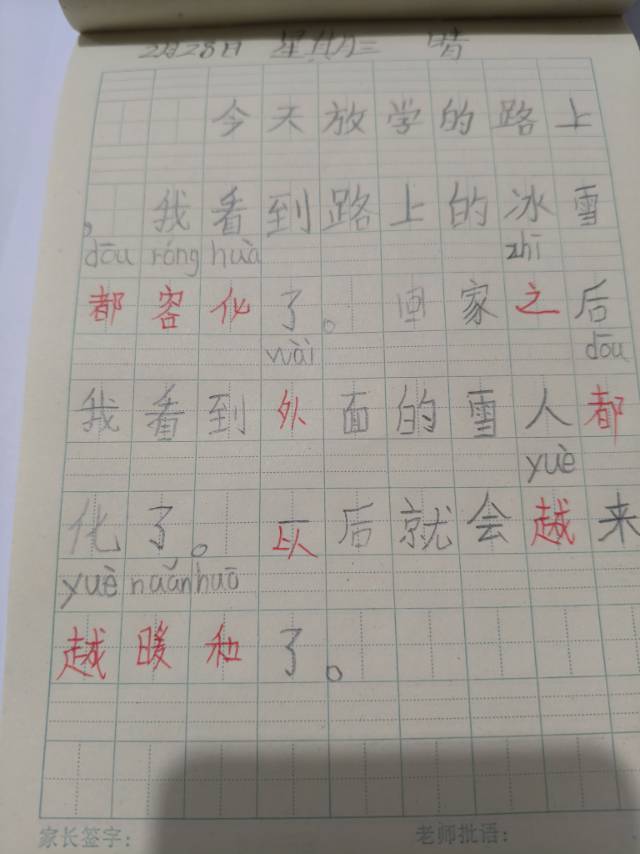 2月28日 星期三 晴
今天放学的路上
，我看到路上的冰雪
dōu róng huà zhī
都容化了。回家之后
wài dōu
我看到外面的雪人都
yuè
化了。以后就会越来
yuè nuǎn huō
越暖和了。
家长签字： 老师批语：